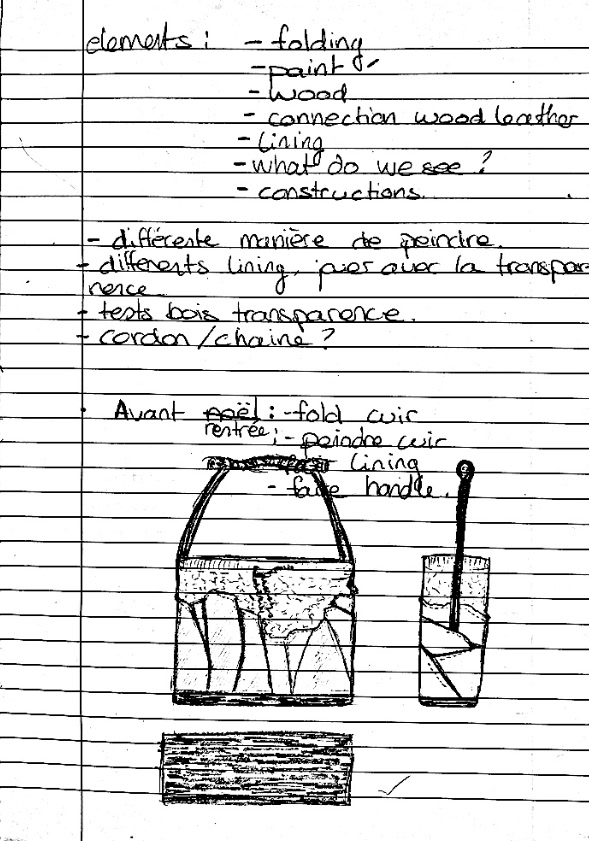 elements : - folding
- paint
- wood
- connection wood leather
- lining
- what do we see ?
- constructions.
- différente manière de peindre.
- differents lining, jouer avec la transpare
rence
- tests bois transparence.
- cordon / chaine ?
Avant noël : - fold cuir
rentrée ; - peindre cuir
- lining
- faire handle.